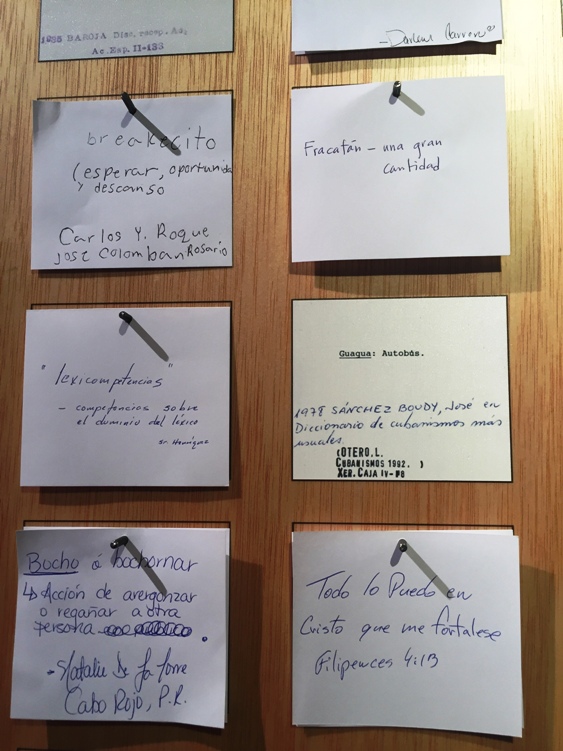 1935 BAROJA Disc. recep. Ac.
Ac. Esp. II-133
breakecito
(esperar, oportunida
y descanso
Carlos Y. Roque
José Colomban Rosario
"lexicompetencias"
- competencias sobre
el dominio del léxico
Dr. Henríquez
Bucho ó bochornar
↳ Acción de avergonzar
o regañar a otra
persona
- Natalie De La Torre
Cabo Rojo, P.R.
- Darlene
Fracatán - una gran
cantidad
Guagua: Autobús.
1978 SÁNCHEZ BOUDY, José en
Diccionario de cubanismos más
usuales
(OTERO.L.
CUBANISMOS 1992. )
XER. CAJA IV-
Todo lo Puedo en
Cristo que me fortalese
Filipences 4:13